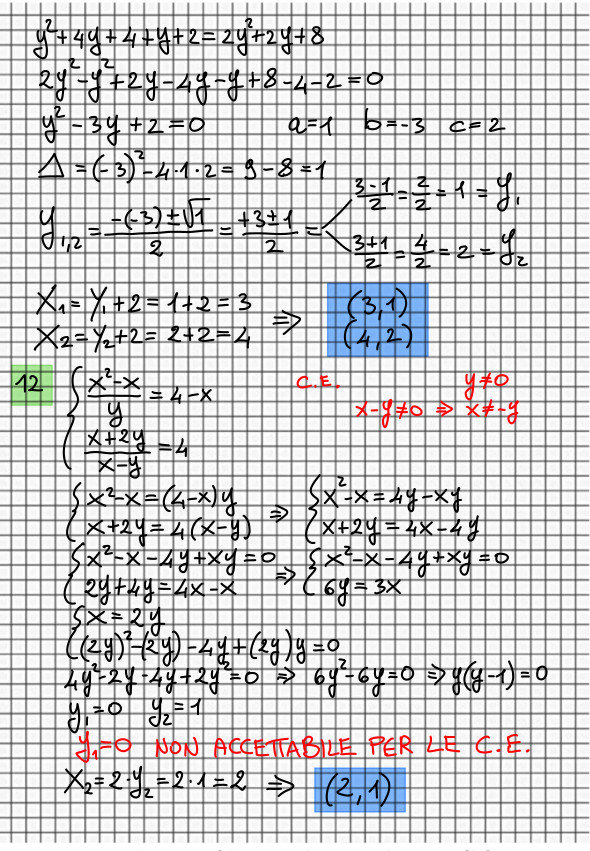 y²+4y+4+y+2=2y²+2y+8
2y²-y²+2y-4y-y+8-4-2=0
y²-3y+2=0 a=1 b=-3 c=2
Δ=(-3)²-4·1·2=9-8=1
y₁,₂=(-(-3)±√1)/2=(+3±1)/2= (3-1)/2=2/2=1=y₁
(3+1)/2=4/2=2=y₂
X₁=y₁+2=1+2=3 ⇒ (3,1)
X₂=y₂+2=2+2=4 (4,2)
12 { (x²-x)/y=4-x C.E. y≠0
x-y≠0 ⇒ x≠-y
(x+2y)/(x-y)=4
{ x²-x=(4-x)y ⇒ { x²-x=4y-xy
x+2y=4(x-y) x+2y=4x-4y
{ x²-x-4y+xy=0 ⇒ { x²-x-4y+xy=0
2y+4y=4x-x 6y=3x
{ x=2y
(2y)²-(2y)-4y+(2y)y=0
4y²-2y-4y+2y²=0 ⇒ 6y²-6y=0 ⇒ y(y-1)=0
y₁=0 y₂=1
y₁=0 NON ACCETTABILE PER LE C.E.
X₂=2·y₂=2·1=2 ⇒ (2,1)